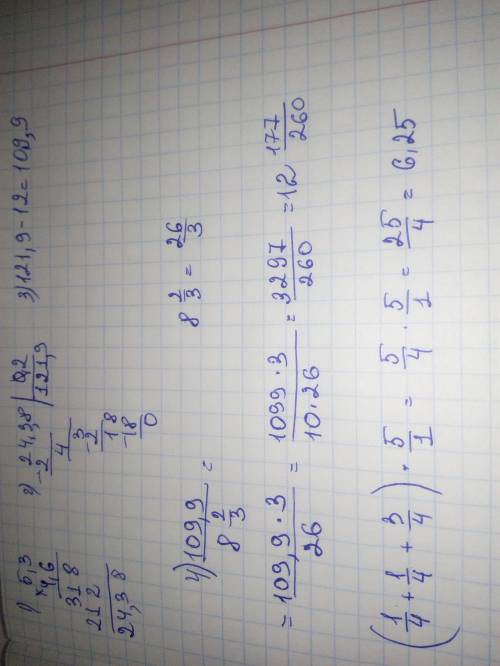 1) 5,3
× 4,6
318
212
24,38
2) 24,38 | 0,2
-2 121,9
4
3
-2
18
-18
0
3) 121,9 - 12 = 109,9
4) 109,9 / 8 2/3 =
8 2/3 = 26/3
= 109,9 · 3 / 26 = 1099 · 3 / 10 · 26 = 3297/260 = 12 177/260
(1/4 + 1/4 + 3/4) · 5/1 = 5/4 · 5/1 = 25/4 = 6,25